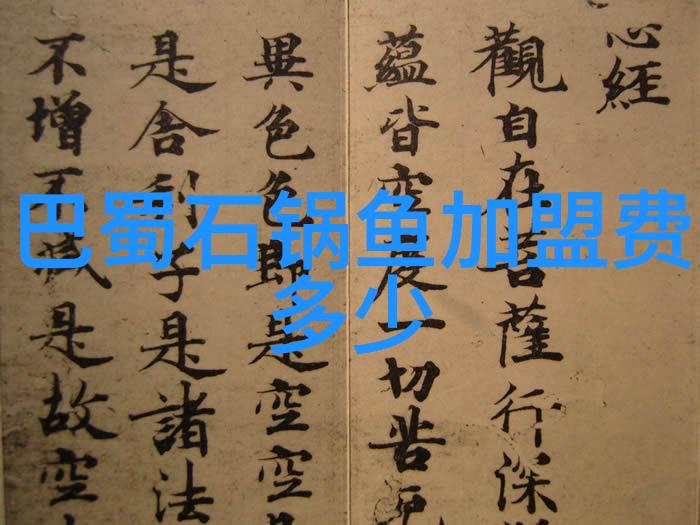 巴蜀石锅鱼加盟费
多少
心經
觀自在菩薩行深
蘊皆空度一切苦厄
異色色即是空空
是舍利子是諸法
不增不減是故空